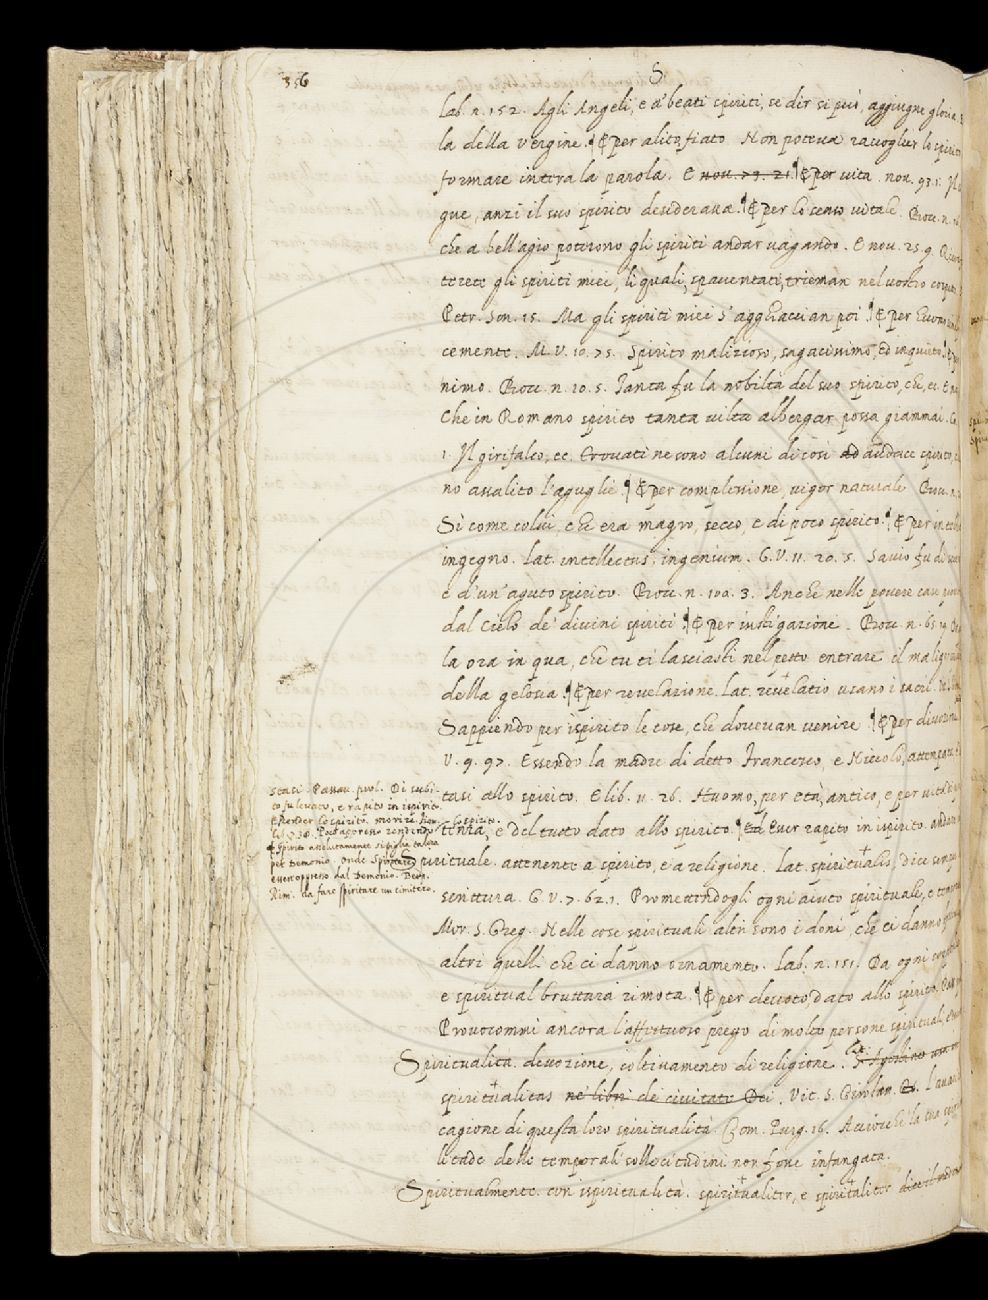 356
S
lab. n. 152. Agli Angeli, e a' beati spiriti, se dir si può, aggiugne gloria
la della Vergine. ¶ E per alito, fiato. Non poteva raccoglier lo spirito
formare intera la parola. E nov. 79. 21. ¶ E per vita. nov. 93. 1. Il
gue, anzi il suo spirito desiderava. ¶ E per lo senso vitale. Bocc. n.
che a bell'agio poterono gli spiriti andar vagando. E nov. 25. 9.
terete gli spiriti miei, li quali, spaventati, trieman nel vostro
Petr. Son. 15. Ma gli spiriti miei s'agghiaccian poi. ¶ E per
cemente. M. V. 10. 75. Spirito malizioso, sagacissimo, ed inquieto. ¶
nimo. Bocc. n. 10. 5. Tanta fu la nobiltà del suo spirito, che, ec. E
Che in Romano spirito tanta viltà albergar possa giammai.
1. Il girifalco, ec. trovati ne sono alcuni di così ad audace spirito,
no assalito l'aguglie. ¶ E per complessione, vigor naturale. Bocc. n.
Sì come colui, che era magro, secco, e di poco spirito. ¶ E per
ingegno. Lat. intellectus, ingenium. G. V. 11. 20. 5. Savio fu di
e d'un' aguto spirito. Bocc. n. 100. 3. Anche nelle povere case
dal Cielo de' divini spiriti. ¶ E per instigazione. Bocc. n. 65. 19.
la ora in qua, che tu ti lasciasti nel petto entrare il maligno
della gelosia. ¶ E per revelazione. Lat. revelatio, usano i sacri.
Sappiendo per ispirito le cose, che dovevan venire. ¶ E per divozione
V. 9. 97. Essendo la madre di detto Francesco, e Niccolò, attempata,
tasi allo spirito. E lib. 11. 26. Huomo, per età, antico, e per vita di
tenza, e del tutto dato allo spirito. ¶ Ed Esser rapito in ispirito. andare
stasi. Passav. prol. Di subito
fu levato, e rapito in ispirito.
E Render lo spirito. morire.
lo spirito.
Poco appresso rendendo
Spirito assolutamente si piglia talora
per Demonio, onde Spiritare
esser oppresso dal Demonio. Bern.
Rim. da fare spiritare un cimitero.
Spirituale. attenente a spirito, e a religione. Lat. spiritualis, dice sempre
scrittura. G. V. 7. 62. 1. Promettendogli ogni aiuto spirituale, e
Mor. S. Greg. Nelle cose spirituali altri sono i doni, che ci danno
altri quelli che ci danno ornamento. Lab. n. 151. Da ogni
e spiritual bruttura rimota. ¶ E per devoto, dato allo spirito.
Provocommi ancora l'affettuoso prego di molte persone spirituali,
Spiritualità. devozione, coltivamento di religione. Lat.
spiritualitas ne' libri de civitate Dei. Vit. S. Girolam.
cagione di questa loro spiritualità. Com. Purg. 16. Acciocchè la tua
litade delle temporali sollecitudini non fosse infangata.
Spiritualmente. con ispiritualità. spiritualiter, e spiritaliter